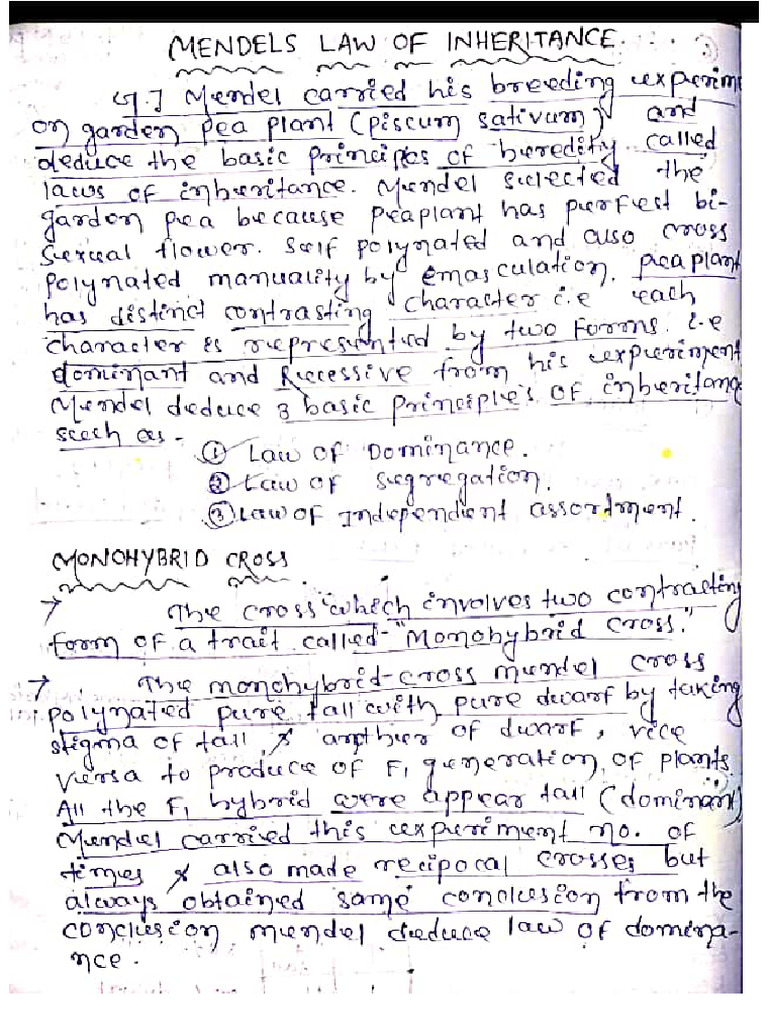 MENDELS LAW OF INHERITANCE.
G.J Mendel carried his breeding experim
on garden pea plant (piscum sativum) and
deduce the basic principles of heredity called
laws of inheritance. Mendel selected the
garden pea because peaplant has perfest bi-
sexual flower. Self polynated and also cross
polynated manuality by emasculation. peaplant
has distinct contrasting character i.e each
character is represented by two forms. i.e
dominant and Recessive from his experiment
Mendel deduce 3 basic principle's of inheritanc
such as -
① Law of Dominance.
② Law of segregation.
③ Law of Independent assortment.
MONOHYBRID CROSS
→ The cross which involves two contrasting
form of a trait called - "Monohybrid Cross."
→ The monohybrid-cross mendel cross
polynated pure tall with pure dwarf by taking
stigma of tall & anther of dwarf, vice
versa to produce of F₁ generation of plants.
All the F₁ hybrid were appear tall (dominant)
Mendel carried this experiment no. of
times & also made recipocal crosses but
always obtained same conclusion from the
conclusion mendel deduce law of domina-
nce.